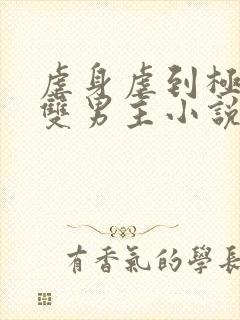 虐身虐到極
雙男主小說
有香氣的學長